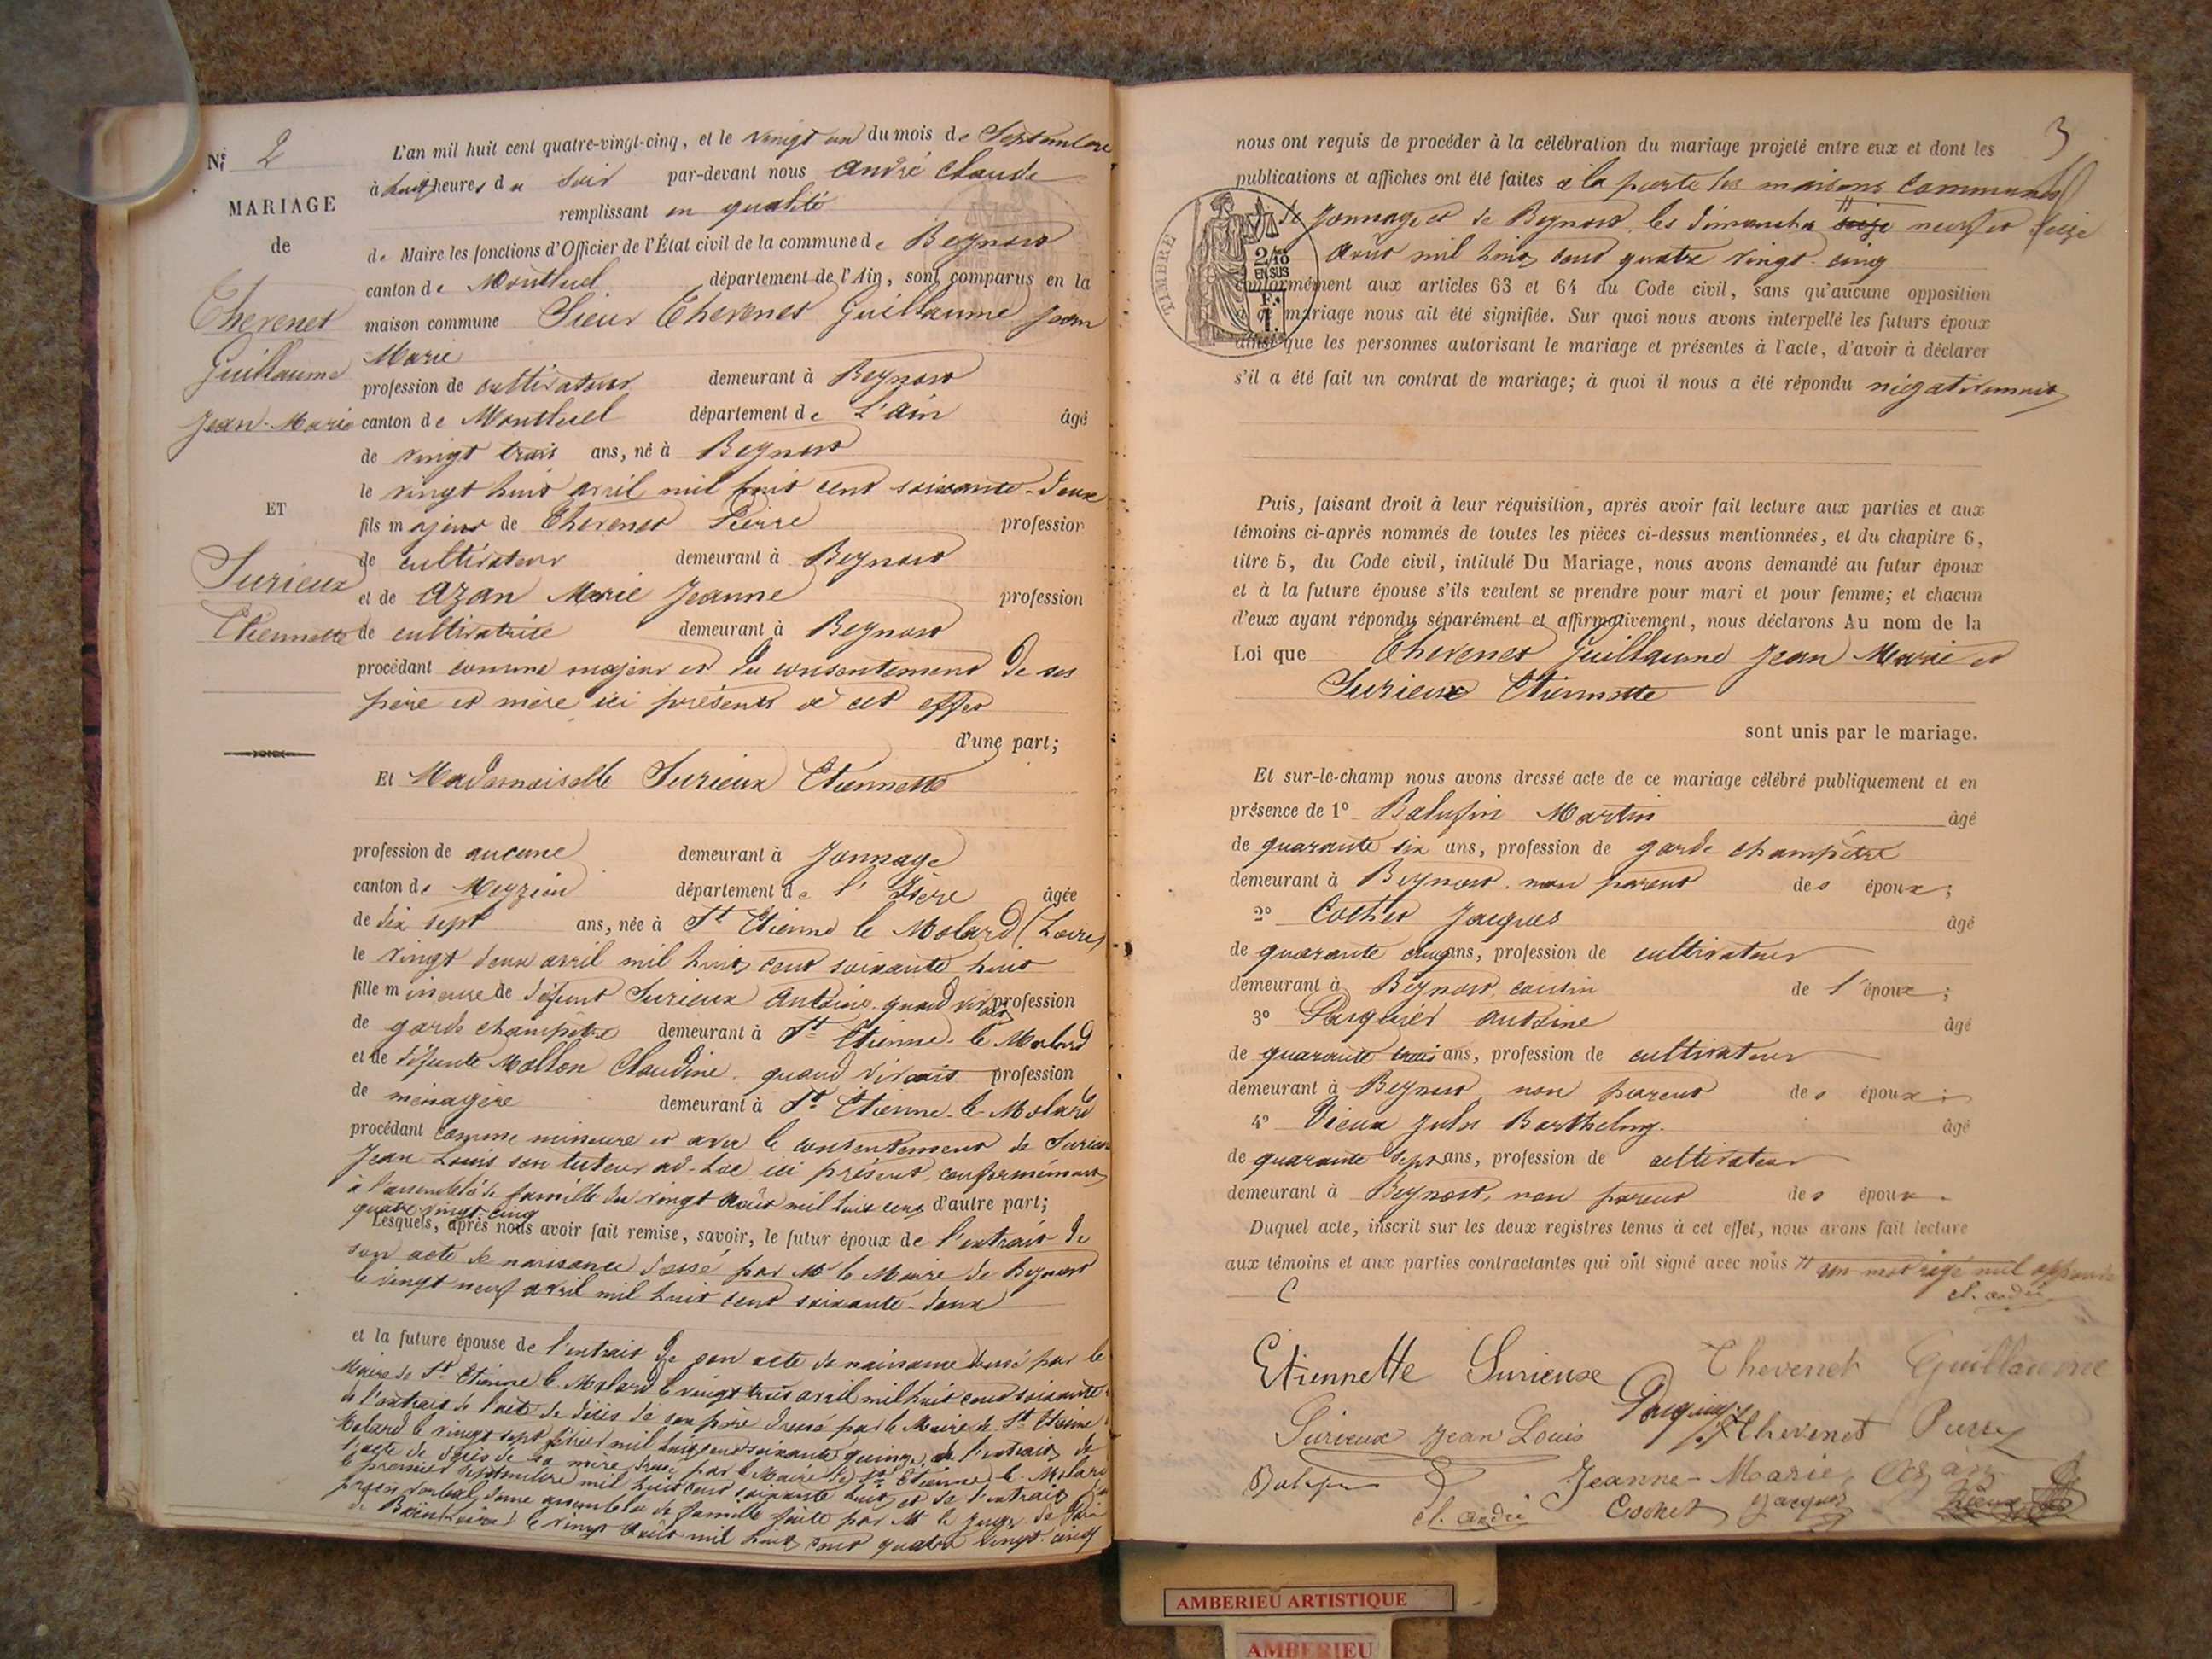 Nº 2
MARIAGE
de
Thevenet
Guillaume
Jean-Marie
ET
Surieux
Etiennette
L'an mil huit cent quatre-vingt-cinq, et le vingt un du mois de Septembre
à huit heures du soir par-devant nous André Claude
remplissant en qualité
de Maire les fonctions d'Officier de l'État civil de la commune de Beynost
canton de Montluel département de l'Ain, sont comparus en la
maison commune Sieur Thevenet Guillaume Jean
Marie
profession de cultivateur demeurant à Beynost
canton de Montluel département de l'Ain âgé
de vingt trois ans, né à Beynost
le vingt huit avril mil huit cent soixante-deux
fils majeur de Thevenet Pierre profession
de cultivateur demeurant à Beynost
et de Azan Marie Jeanne profession
de cultivatrice demeurant à Beynost
procédant comme majeur et du consentement de ses
père et mère ici présents à cet effet
d'une part;
Et Mademoiselle Surieux Etiennette
profession de aucune demeurant à Jonnage
canton de Meyzieu département de l'Isère âgée
de dix sept ans, née à St Etienne le Molard (Loire)
le vingt deux avril mil huit cent soixante huit
fille mineure de défunt Surieux Antoine quand vivait profession
de garde champêtre demeurant à St Etienne-le Molard
et de défunte Mollon Claudine quand vivait profession
de ménagère demeurant à St Etienne-le-Molard
procédant comme mineure et avec le consentement de Surieux
Jean Louis son tuteur ad-hoc ici présent, conformément
à l'assemblée de famille du vingt Août mil huit cent d'autre part;
quatre vingt cinq
Lesquels, après nous avoir fait remise, savoir, le futur époux de l'extrait de
son acte de naissance dressé par Mr le Maire de Beynost
le vingt neuf avril mil huit cent soixante-deux
et la future épouse de l'extrait de son acte de naissance dressé par le
Maire de St Etienne le Molard le vingt trois avril mil huit cent soixante
de l'extrait de l'acte de décès de son père dressé par le Maire de St Etienne
Molard le vingt sept février mil huit cent soixante quinze, de l'extrait de
l'acte de décès de sa mère dressé par le Maire de St Etienne le Molard
le premier Septembre mil huit cent soixante huit et de l'extrait du
procès verbal d'une assemblée de famille faite par Mr le Juge de Paix
de le vingt Août mil huit cent quatre vingt cinq
3
nous ont requis de procéder à la célébration du mariage projeté entre eux et dont les
publications et affiches ont été faites à la porte des maisons communes
de Jonnage et de Beynost les dimanche seize neuf et seize
Août mil huit cent quatre vingt-cinq
conformément aux articles 63 et 64 du Code civil, sans qu'aucune opposition
à ce mariage nous ait été signifiée. Sur quoi nous avons interpellé les futurs époux
ainsi que les personnes autorisant le mariage et présentes à l'acte, d'avoir à déclarer
s'il a été fait un contrat de mariage; à quoi il nous a été répondu négativement
TIMBRE
2/10
EN SUS
F.
Puis, faisant droit à leur réquisition, après avoir fait lecture aux parties et aux
témoins ci-après nommés de toutes les pièces ci-dessus mentionnées, et du chapitre 6,
titre 5, du Code civil, intitulé Du Mariage, nous avons demandé au futur époux
et à la future épouse s'ils veulent se prendre pour mari et pour femme; et chacun
d'eux ayant répondu séparément et affirmativement, nous déclarons Au nom de la
Loi que Thevenet Guillaume Jean Marie et
Surieux Etiennette
sont unis par le mariage.
Et sur-le-champ nous avons dressé acte de ce mariage célébré publiquement et en
présence de 1º Balufin Martin âgé
de quarante six ans, profession de garde champêtre
demeurant à Beynost, non parent des époux;
2º Cochet Jacques âgé
de quarante cinq ans, profession de cultivateur
demeurant à Beynost, cousin de l'époux;
3º Pasquier Antoine âgé
de quarante trois ans, profession de cultivateur
demeurant à Beynost non parent des époux;
4º Vieux Jules Barthelmy. âgé
de quarante sept ans, profession de cultivateur
demeurant à Beynost, non parent des époux.
Duquel acte, inscrit sur les deux registres tenus à cet effet, nous avons fait lecture
aux témoins et aux parties contractantes qui ont signé avec nous # un mot rayé nul approuvé
cl. andré
Etiennette Surieux Thevenet Guillaume
Surieux Jean Louis Pasquier Thevenet Pierre
Balufin Jeanne-Marie Azan
cl. andré Cochet Jacques Vieux
AMBERIEU ARTISTIQUE
AMBERIEU